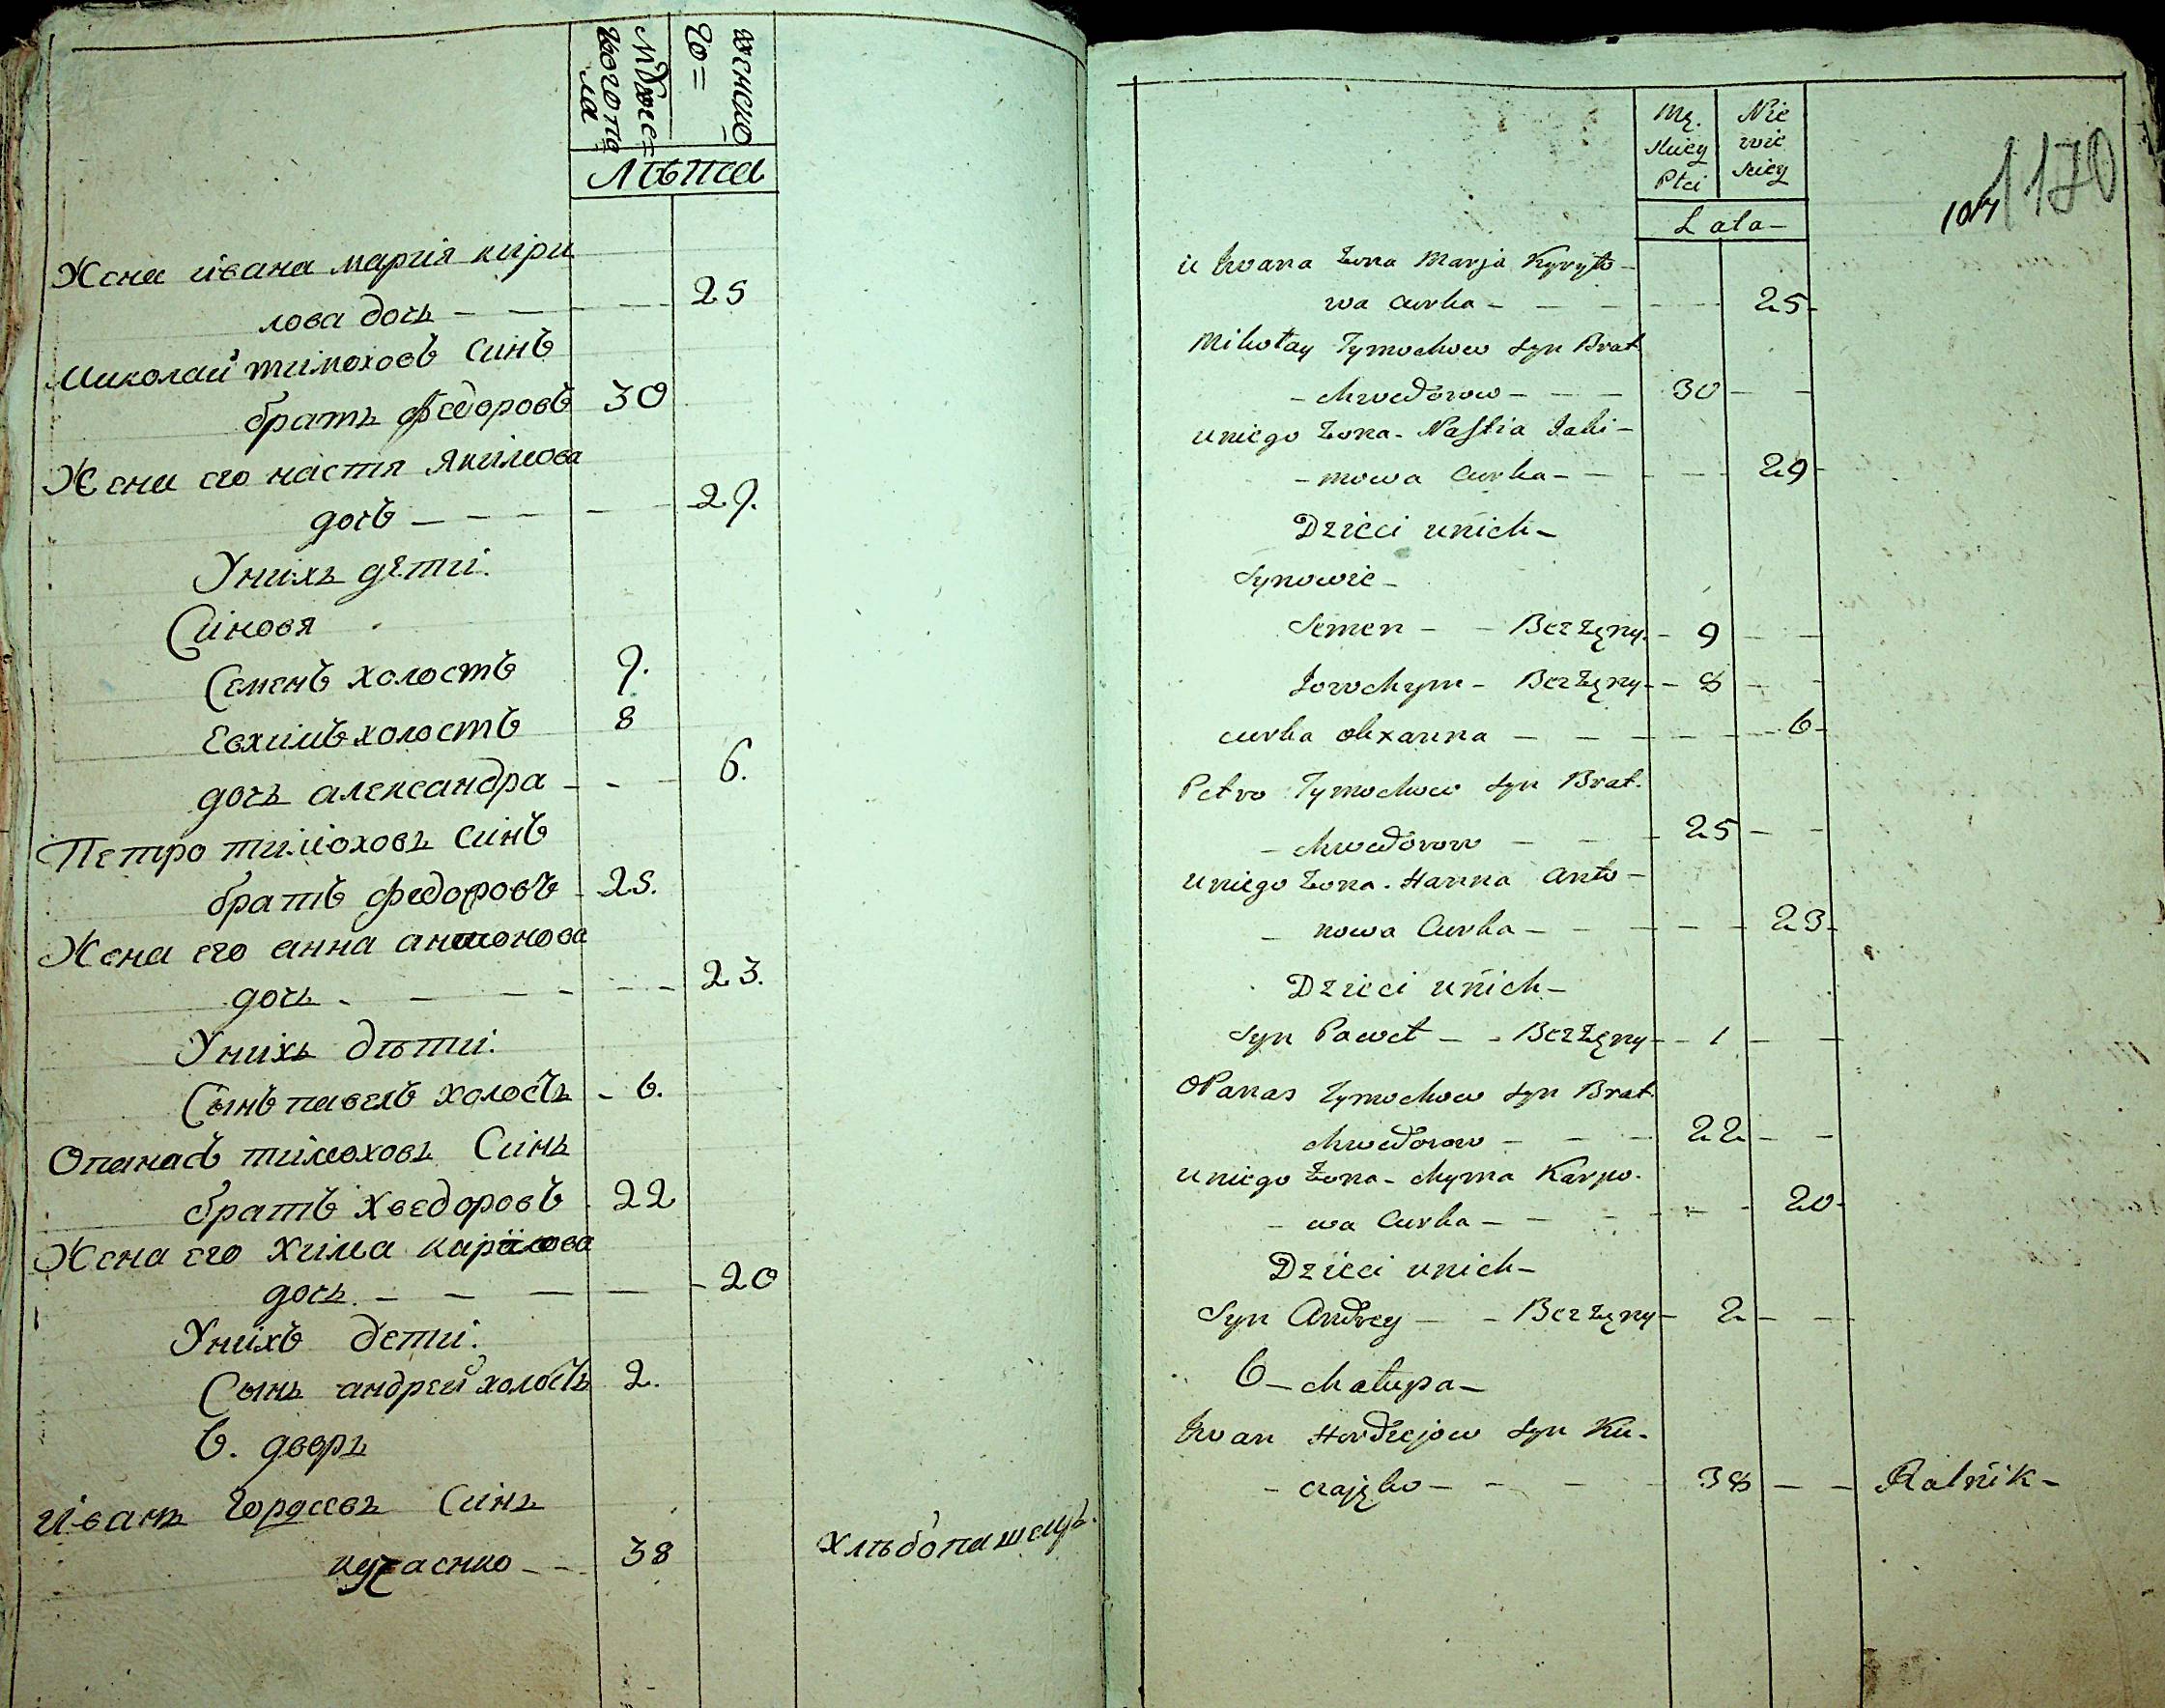 Мужес=
кого по
ла
женско
го=
Лѣта
Жена ивана мария кири
лова дочь — — — 25
Миколай тимоховъ синъ
братъ федоровъ 30
Жена его настя якимова
дочь — — — — 29.
Унихъ дети.
Синовя
Семенъ холостъ 9.
Евхимъ холостъ 8
дочь александра — — — 6.
Петро тимоховъ синъ
братъ федоровъ — 25.
Жена его анна антонова
дочь — — — — 23.
Унихъ дѣти.
Сынъ павелъ холостъ — 6.
Опанасъ тимоховъ Синъ
братъ хведоровъ 22
Жена его Хима карпова
дочь — — — — 20
Унихъ дети.
Сынъ андрей холостъ 2.
6. дворъ
Иванъ Гордеевъ Синъ
кучаенко — — 38 хлѣбопашецъ.
Mę.
skiey
Płci
Nie
wie
skiey
Lata—
107 1170
u Iwana Żona Marja Kyryło—
wa curka — — — — — 25—
Mikołay Tymochow syn Brat
— chwedorow — — — 30 — —
uniego Żona— Nastia Jaki—
— mowa curka — — — — 29—
Dzieci unich—
Synowie—
Semen — — Bezżęny. — 9 — —
Jowchym — Bezżęny — — 8 — —
curka olexanna — — — — — 6—
Petro Tymochow syn Brat.
— chwedorow — — — 25 — —
uniego Żona. Hanna Anto—
— nowa Curka — — — — — 23—
Dzieci unich—
Syn Paweł — — Bezżęny — — 1 — —
OPanas Tymochow syn Brat.
chwedorow — — — 22 — —
uniego Żona— chyma Karpo.
— wa Curka — — — — — 20—
Dzieci unich—
Syn Andrey — — Bezżęny — 2 — —
6— chałupa—
Iwan Hordziejow syn Ku—
— czajęko — — — — 38 — — Ratnik—